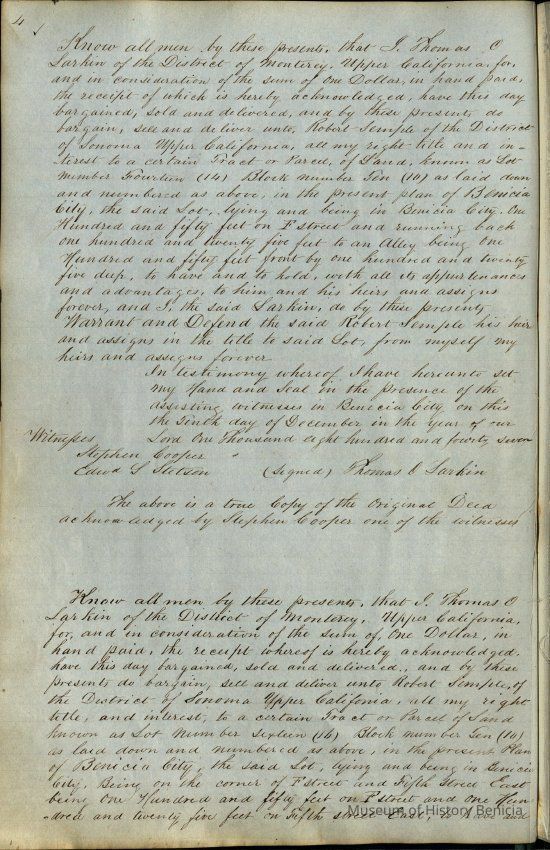 4
Know all men by these presents, that I, Thomas O
Larkin of the District of Monterey, Upper California, for,
and in consideration of the sum of One Dollar, in hand paid,
the receipt of which is hereby acknowledged, have this day
bargained, sold and delivered, and by these presents do
bargain, sell and deliver unto Robert Semple of the District
of Sonoma Upper California, all my right title and in-
terest to a certain Tract or Parcel, of Land, known as Lot
number Fourteen (14) Block number Ten (10) as laid down
and numbered as above, in the present plan of Benicia
City, the said Lot, lying and being in Benicia City. One
Hundred and fifty feet on F street and running back
one hundred and twenty five feet to an Alley being One
Hundred and fifty feet front by one hundred and twenty
five deep, to have and to hold, with all its appurtenances
and advantages, to him and his heirs and assigns
forever, and I, the said Larkin, do by these presents,
Warrant and Defend the said Robert Semple his heirs
and assigns in the title to said Lot, from myself my
heirs and assigns forever
In testimony whereof I have hereunto set
my Hand and Seal in the presence of the
assisting witnesses in Benicia City, on this
the Tenth day of December in the year of our
Witnesses Lord One Thousand eight hundred and fourty seven
Stephen Cooper "
Edwd L Stetson (Signed) Thomas O Larkin
The above is a true Copy of the Original Deed
acknowledged by Stephen Cooper one of the witnesses
Know all men by these presents, that I, Thomas O
Larkin of the District of Monterey, Upper California,
for, and in consideration of the sum of, One Dollar, in
hand paid, the receipt whereof is hereby acknowledged.
have this day bargained, sold and delivered, and by these
presents do bargain, sell and deliver unto Robert Semple, of
the District of Sonoma Upper Califonia, all my right
title, and interest, to a certain Tract or Parcel of Land
Known as Lot Number Sixteen (16) Block number Ten (10)
as laid down and numbered as above, in the present Plan
of Benicia City, the said Lot, lying and being in Benicia
City, Being on the corner of F street and Fifth Street East
being One Hundred and fifty feet on F street and One Hun-
dred and twenty five feet on Fifth street East, to have and
Museum of History Benicia